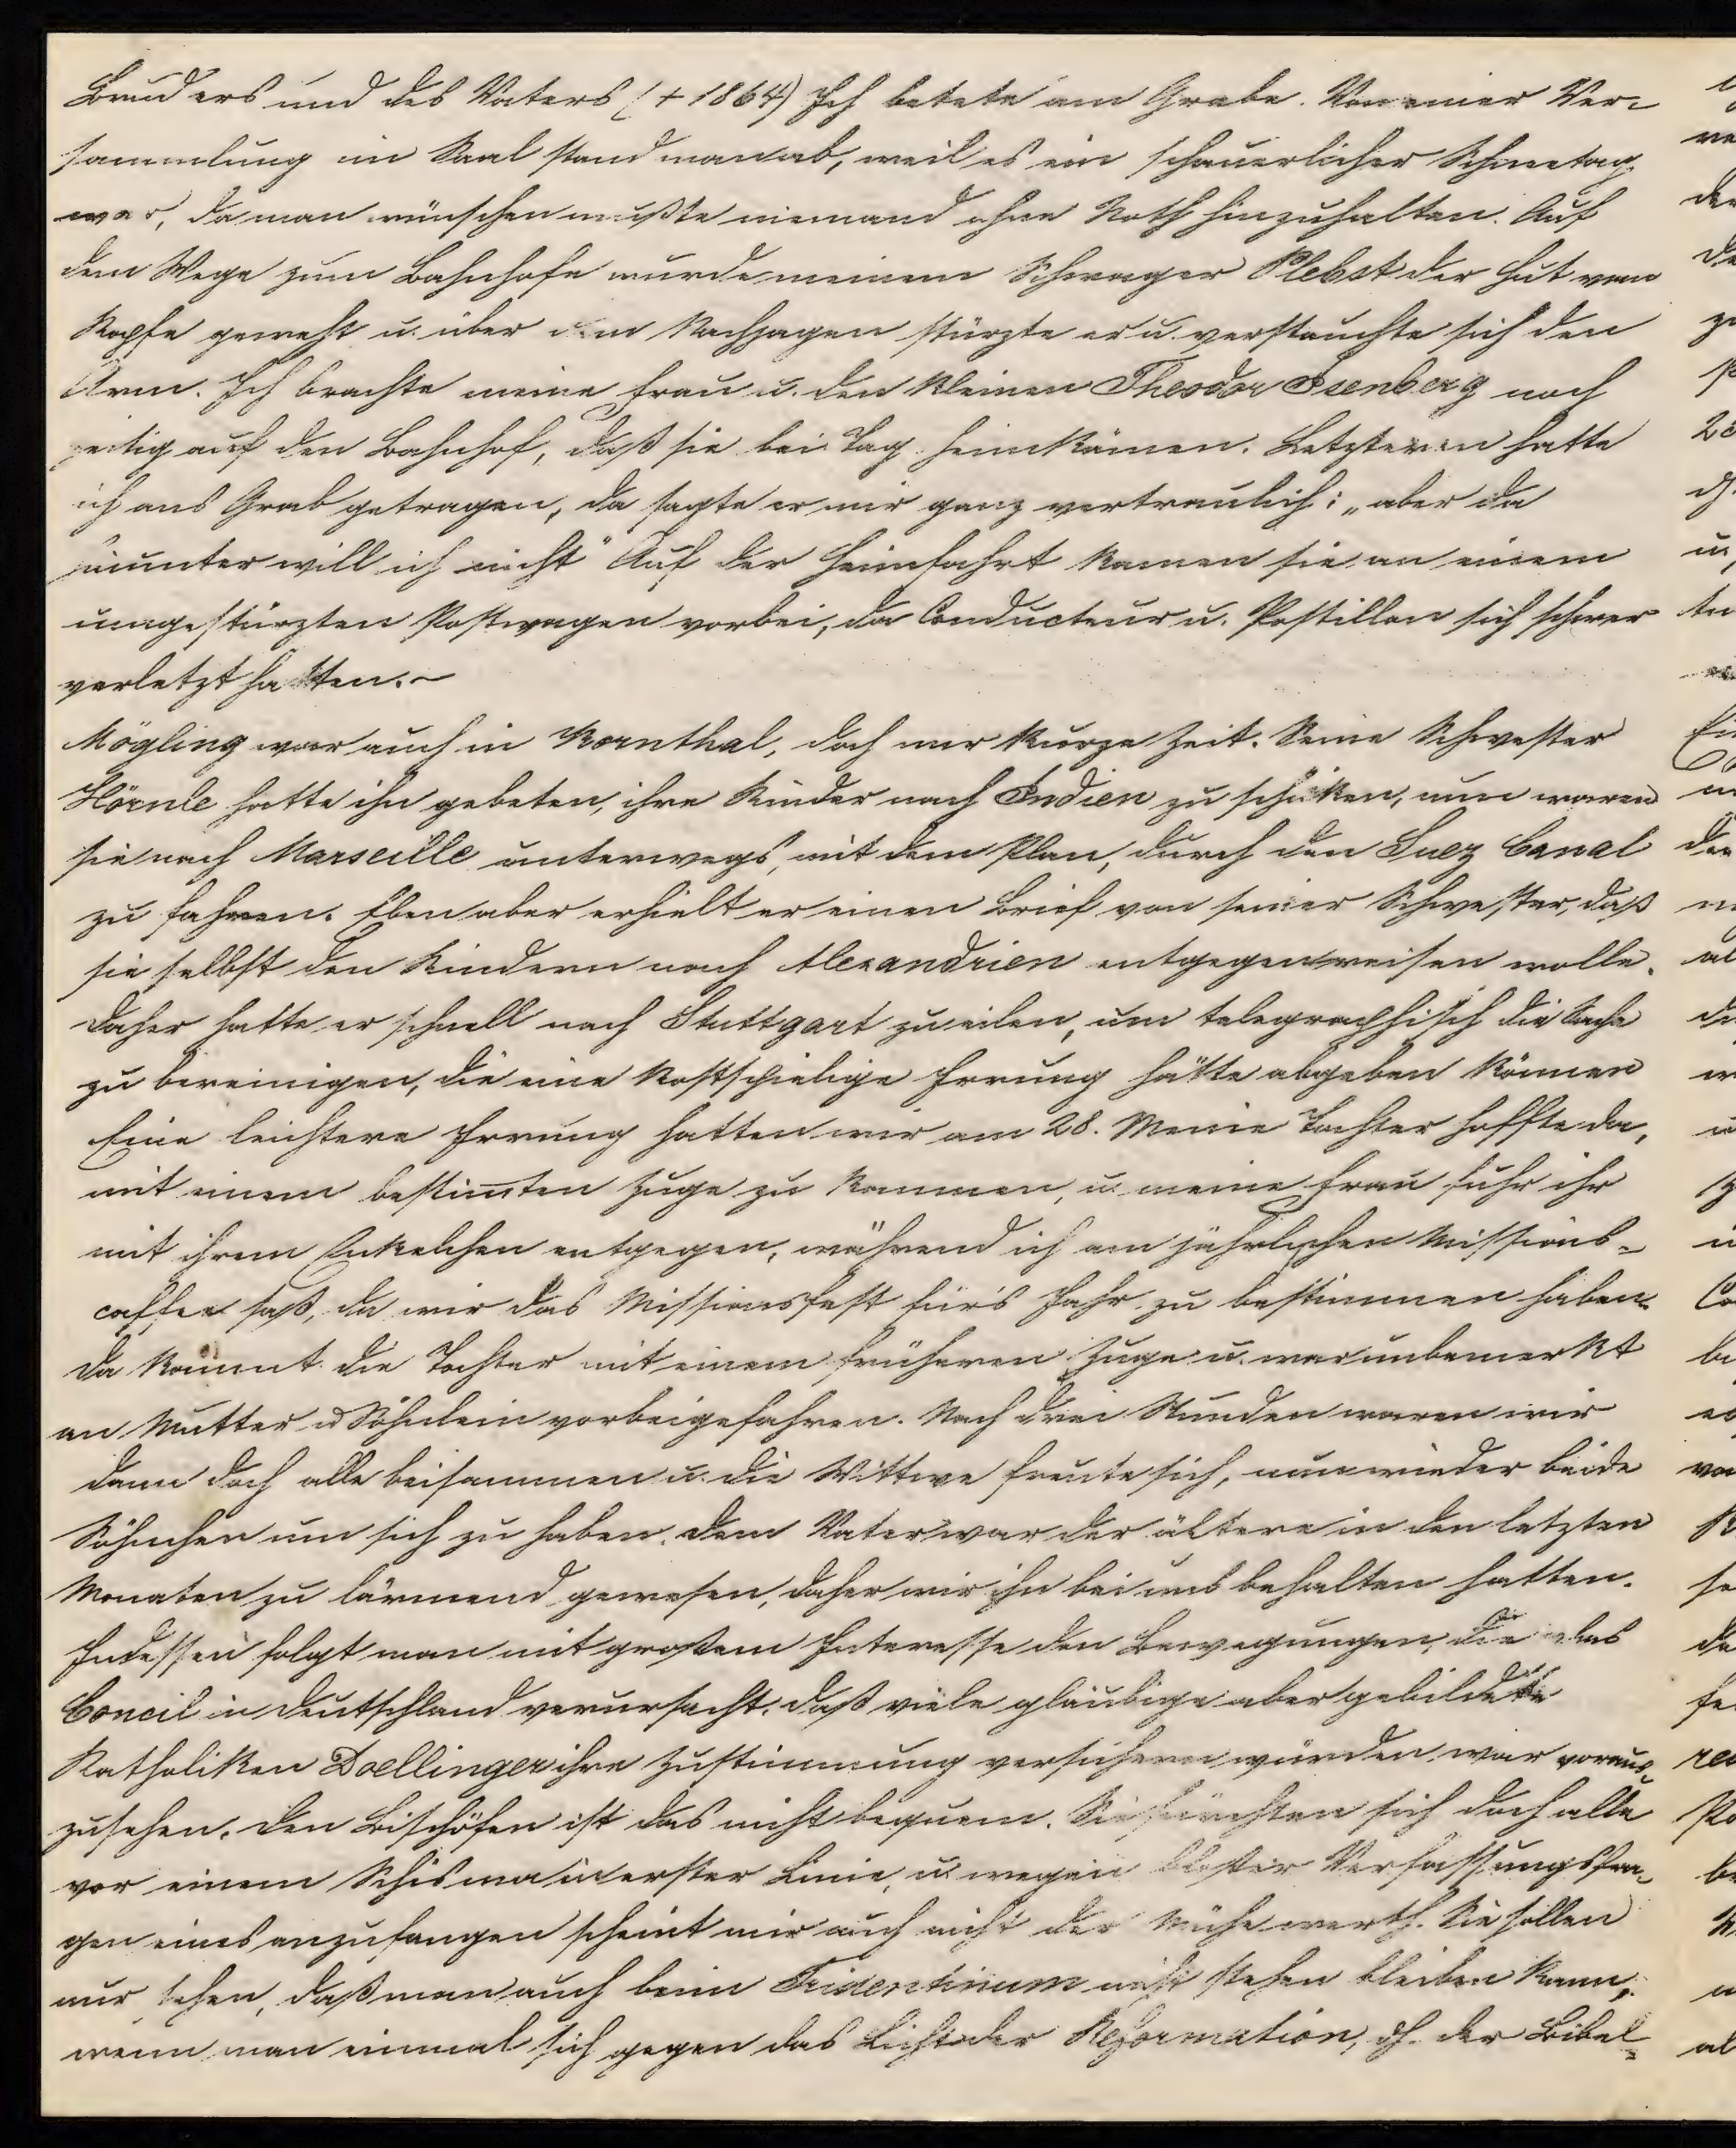 Bruders und des Vaters (+ 1864) Ich betete am Grabe. Von einer Ver-
sammlung im Saal stand man ab, weil es ein schauerlicher Schneetag
war, da man wünschen mußte niemand ohne Noth hinzuhalten. Auf
dem Wege zum Bahnhofe wurde meinem Schwager Plebst der Hut vom
Kopfe geweht u. über dem Nachjagen stürzte er u. verstauchte sich den
Arm. Ich brachte meine Frau u. den kleinen Theodor Isenberg noch
zeitig auf den Bahnhof, daß sie bei Tag heimkämen. Letzteren hatte
ich ans Grab getragen, da sagte er mir ganz vertraulich: „aber da
nunter will ich nicht" Auf der Heimfahrt kamen sie an einem
umgestürzten Postwagen vorbei, da Conducteur u. Postillon sich schwer
verletzt hatten. –
Mögling war auch in Kornthal, doch nur kurze Zeit. Seine Schwester
Hörnle hatte ihn gebeten, ihre Kinder nach Indien zu schicken, nun waren
sie nach Marseille unterwegs, mit dem Plan, durch den Suez Canal
zu fahren. Eben aber erhielt er einen Brief von seiner Schwester, daß
sie selbst den Kindern nach Alexandrien entgegenreisen wolle.
Daher hatte er schnell nach Stuttgart zu eilen, um telegraphisch die Sache
zu bereinigen, die eine kostspielige Irrung hätte abgeben können
Eine leichtere Irrung hatten wir am 28. Meine Tochter hoffte da,
mit einem bestimmten Zuge zu kommen, u. meine Frau fuhr ihr
mit ihrem Enkelchen entgegen, während ich am jährlichen Missions-
caffee saß, da wir das Missionsfest für's Jahr zu bestimmen haben.
Da kommt die Tochter mit einem früheren Zuge u. war unbemerkt
an Mutter u Söhnlein vorbeigefahren. Nach drei Stunden waren wir
dann doch alle beisammen u. die Wittwe freute sich, nun wieder beide
Söhnchen um sich zu haben. Dem Vater war der ältere in den letzten
Monaten zu lärmend gewesen, daher wir ihn bei uns behalten hatten.
Indessen folgt man mit großem Interesse den Bewegungen, die das
Concil in Deutschland verursacht. Daß viele gläubige aber gebildete
Katholiken Doellinger ihre Zustimmung versichern würden, war voraus-
zusehen. Den Bischöfen ist das nicht bequem. Sie fürchten sich doch alle
vor einem Schisma in erster Linie, u. wegen bloßer Verfassungsfra-
gen eines anzufangen scheint mir auch nicht der Mühe werth. Sie sollen
nur sehen, daß man auch beim Tridentinum nicht stehen bleiben kann,
wenn man einmal sich gegen das Licht der Reformation, dh. der Bibel-